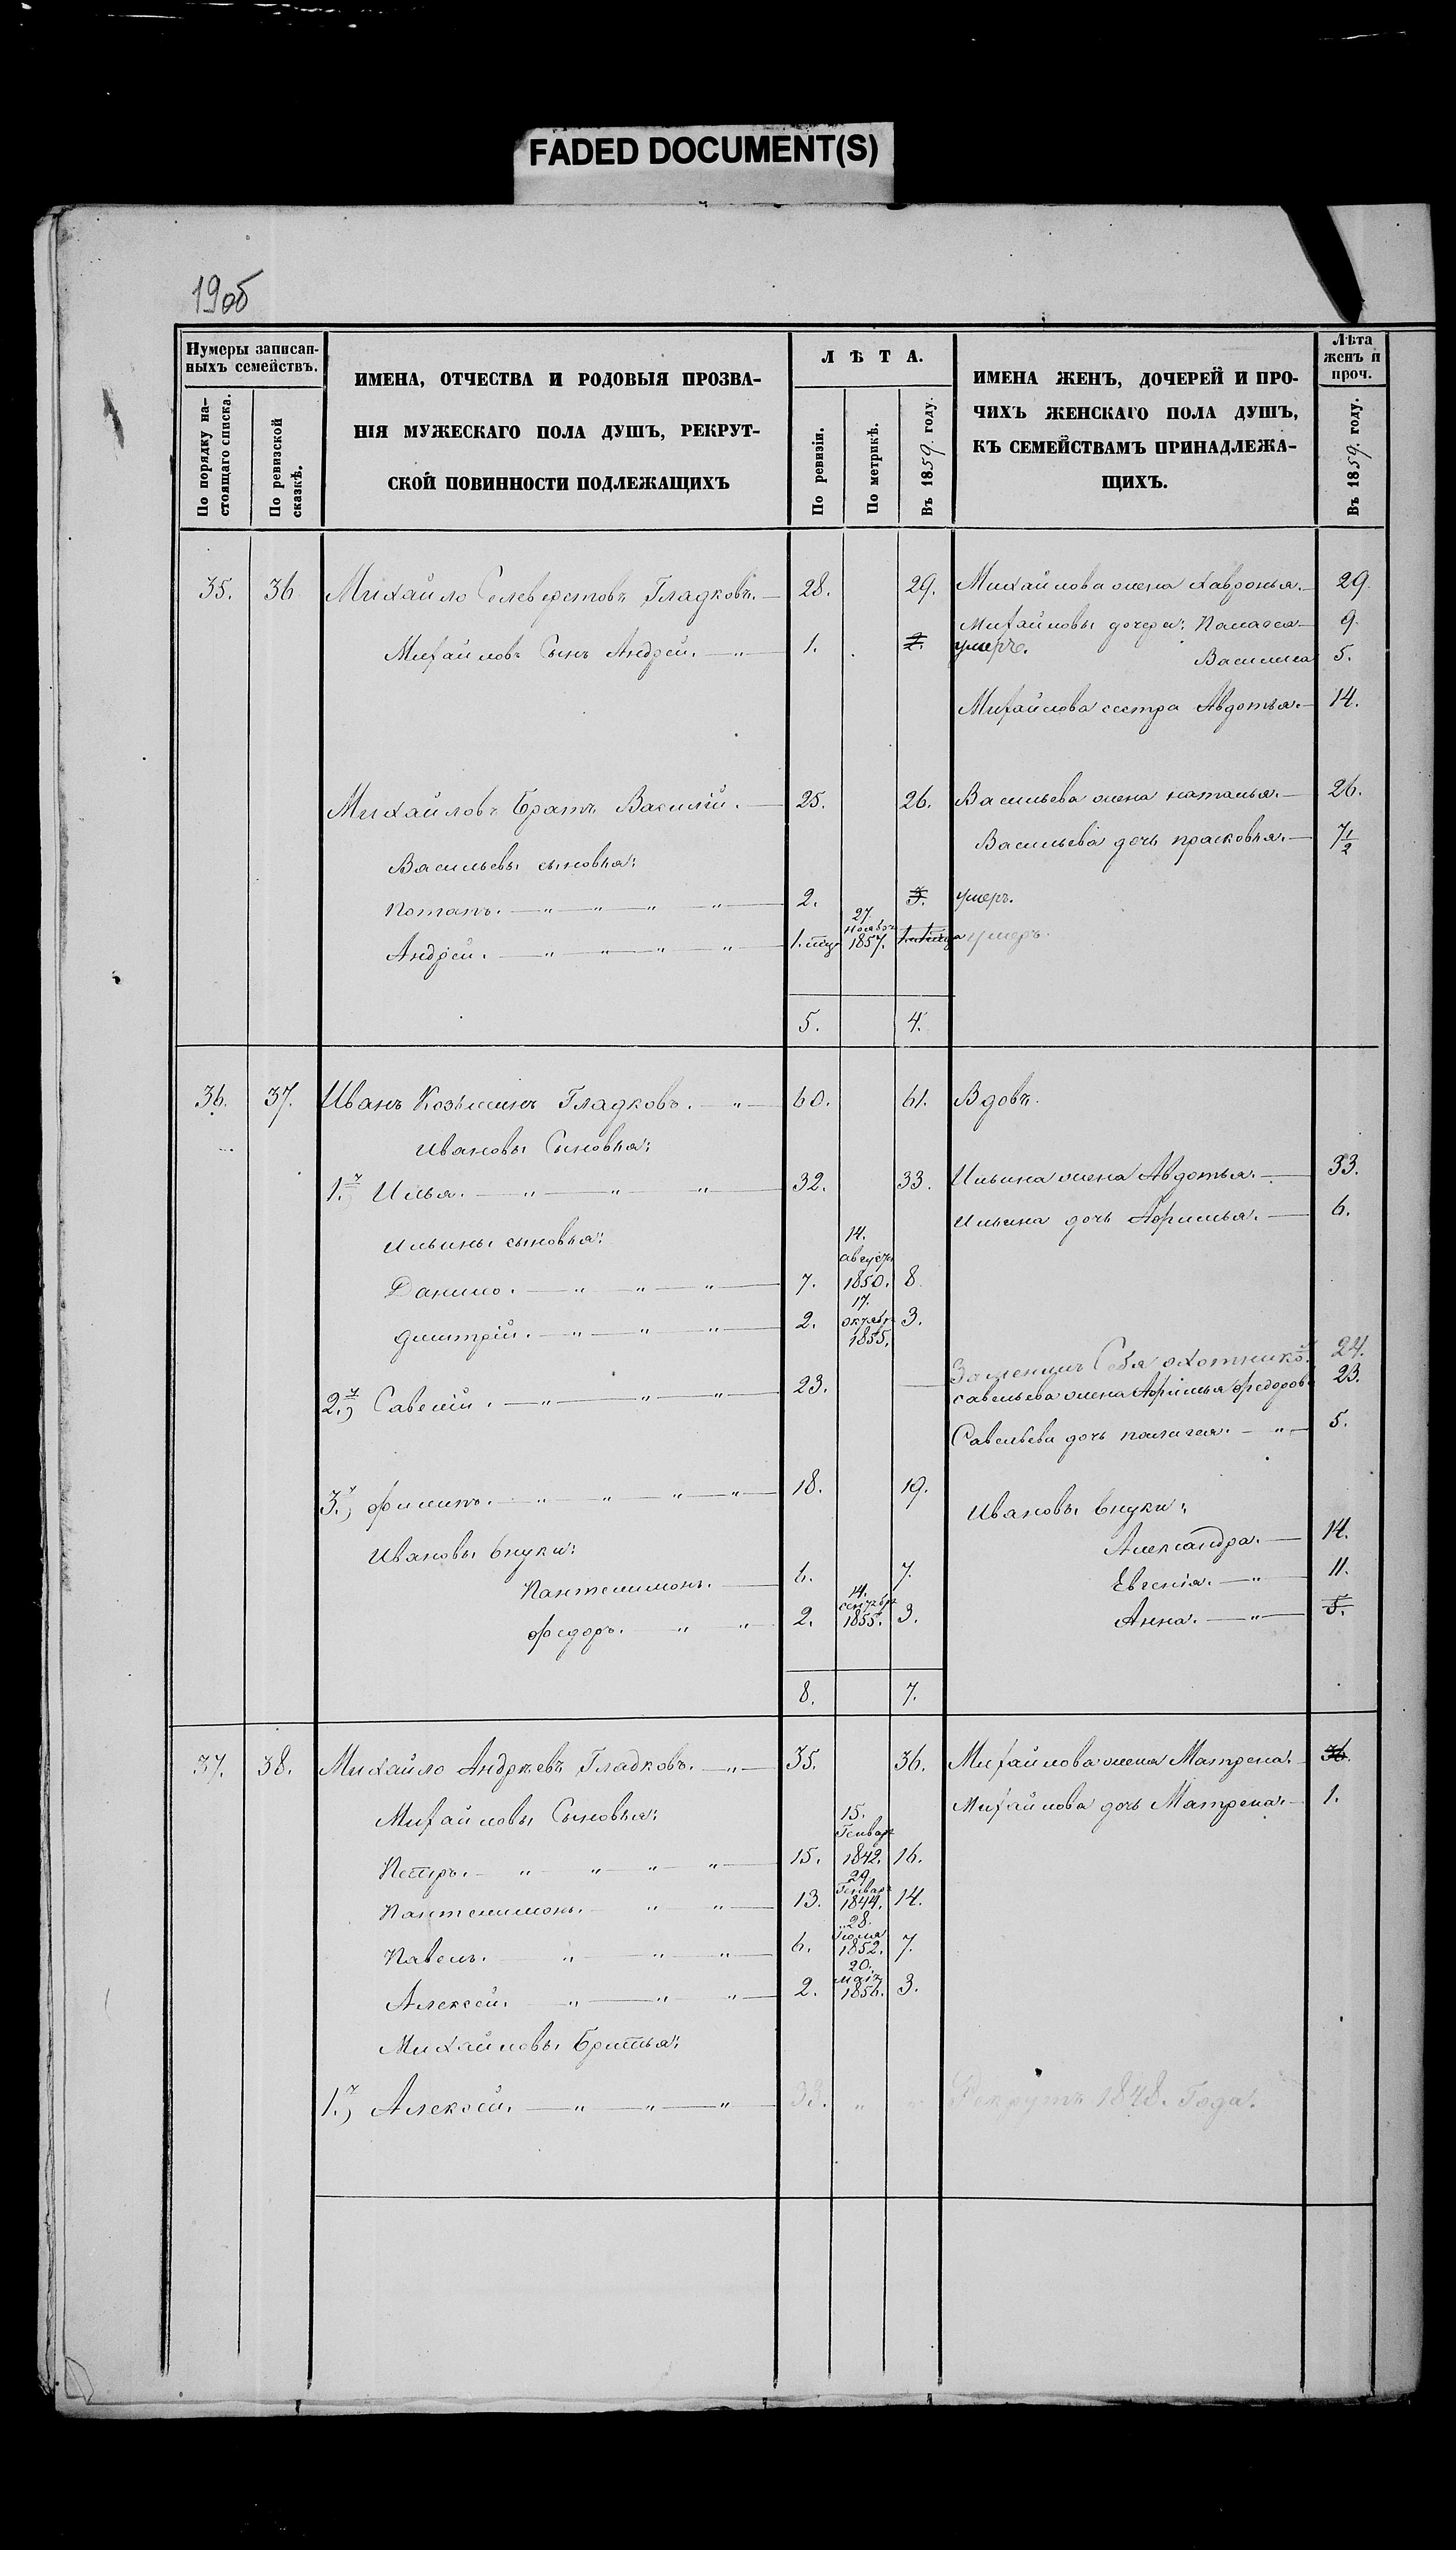 FADED DOCUMENT(S)
190б
Нумеры записан-
ныхъ семействъ.
По порядку на-
стоящаго списка.
По ревизской
сказкѣ.
ИМЕНА, ОТЧЕСТВА И РОДОВЫЯ ПРОЗВА-
НІЯ МУЖЕСКАГО ПОЛА ДУШЪ, РЕКРУТ-
СКОЙ ПОВИННОСТИ ПОДЛЕЖАЩИХЪ
ЛѢТА.
По ревизіи.
По метрикѣ.
Въ 1859. году.
ИМЕНА ЖЕНЪ, ДОЧЕРЕЙ И ПРО-
ЧИХЪ ЖЕНСКАГО ПОЛА ДУШЪ,
КЪ СЕМЕЙСТВАМЪ ПРИНАДЛЕЖА-
ЩИХЪ.
Лѣта
женъ и
проч.
Въ 1859. году.
35. 36 Михайло Селеверстовъ Гладковъ. 28. 29. Михайлова жена Хавронья. 29
Михайловы дочери: 9
Михайловъ Сынъ Андрей. 1. 2. умеръ. Василиса 5.
Михайлова сестра Авдотья. 14.
Михайловъ Братъ Василій. 25. 26. Васильева жена наталья. 26.
Васильева дочь прасковья. 7 1/2
Васильевы сыновья:
Потапъ. 2. 3. умеръ.
Андрей. 27 Ноября 1857. умеръ.
5. 4.
36. 37. Иванъ Козьминъ Гладковъ. 60. 61. Вдовъ.
Ивановы Сыновья:
1.й) Илья. 32. 33. Ильина жена Авдотья. 33.
Ильина дочь Афимья. 6.
Ильины сыновья:
Данило. 7. 14. августа 1850. 8
дмитрій. 2. 17. октября 1855. 3.
Заменилъ Себя охотникō. 24.
2.й) Савелій. 23. савельева жена Афимья Федорова 23.
Савельева дочь палагея. 5.
3.й) филипъ. 18. 19.
Ивановы внуки:
Александра. 14.
Ивановы внуки:
Пантелимонъ. 6. 7. Евгенія. 11.
федоръ. 2. 14. сентября 1855. 3. Анна. 5.
8. 7.
37. 38. Михайло Андреевъ Гладковъ. 35. 36. Михайлова жена Матрена. 36.
Михайлова дочь Матрена. 1.
Михайловы Сыновья:
Петръ. 15. 15. Генваря 1842. 16.
Пантелимонъ. 13. 29 Генваря 1844. 14.
Павелъ. 6. 28. 1852. 7.
Алексей. 2. 20. маія 1856. 3.
Михайловы Братья:
1.й) Алексей. 33. Рекрутъ 1848. Года.